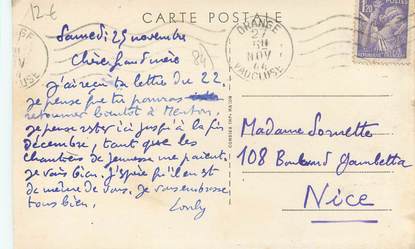 12 €
CARTE POSTALE
Samedi 25 novembre
Chère grand'mère
84
j'ai reçu ta lettre du 22,
je pense que tu pourras
retourner bientôt à Menton,
je pense rester ici jusqu'à la fin
décembre, tant que les
chantiers de jeunesse me paient.
je vais bien. J'espère qu'il en est
de même de vous. Je vous embrasse
tous bien.
ORANGE
27
NOV
44
VAUCLUSE
1F20
Madame
108 Boulevard Gambetta
Nice